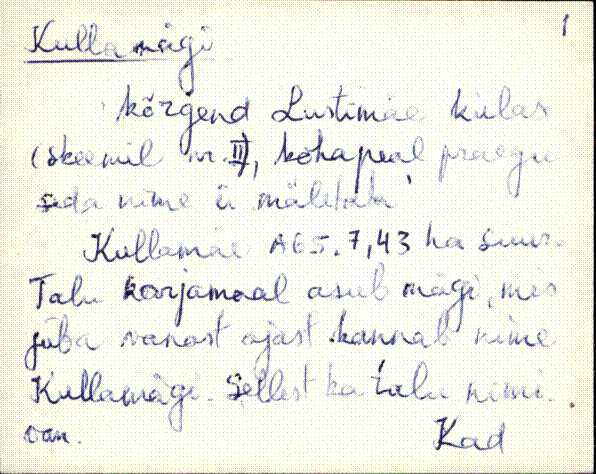 1
Kullamägi
kõrgend Lustimäe külas
(skeemil nr. II), kohapeal praegu
seda nime ei mäletata
Kullamäe A65. 7,43 ha suur.
Talu karjamaal asub mägi, mis
juba vanast ajast kannab nime
Kullamägi. Sellest ka talu nimi.
van. Kad